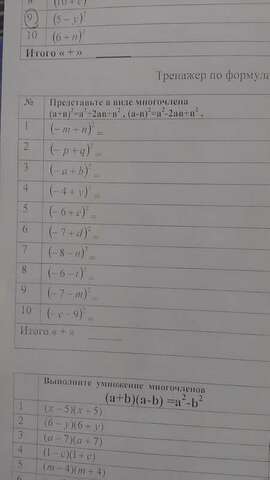 8 (10 + c)²
9 (5 – y)²
10 (6 + n)²
Итого « + »
Тренажер по формула
№ Представьте в виде многочлена
(а+в)²=а²+2ав+в² , (а-в)²=а²-2ав+в² ,
1 (– m + n)² =
2 (– p + q)² =
3 (– a + b)² =
4 (– 4 + v)² =
5 (– 6 + c)² =
6 (– 7 + d)² =
7 (– 8 – n)² =
8 (– 6 – t)² =
9 (– 7 – m)² =
10 (– c – 9)² =
Итого « + »
Выполните умножение многочленов
(a+b)(a-b) =a²-b²
1 (x – 5)(x + 5)
2 (6 – y)(6 + y)
3 (a – 7)(a + 7)
4 (1 – c)(1 + c)
5 (m – 4)(m + 4)